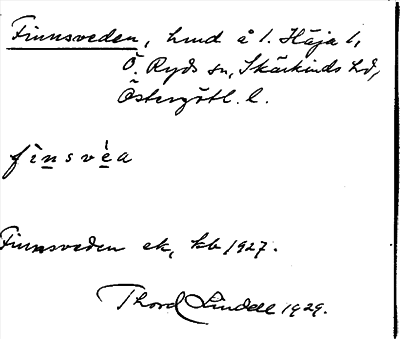 Finnsveden, hmd å l. Häja l,
Ö. Ryds sn, Skärkinds hd,
Östergötl. l.
fìnsvéa
Finnsveden ek, kb 1927.
Thord Lindell 1929.